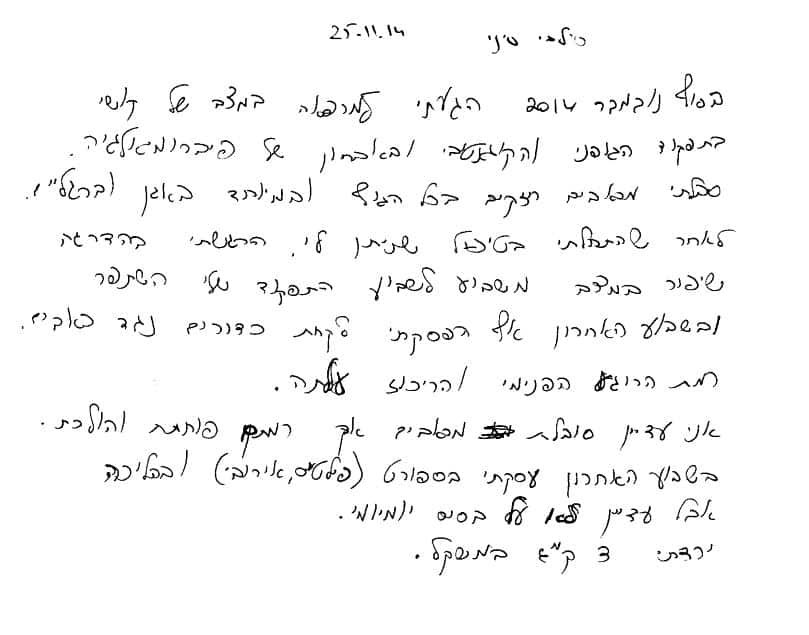 25.11.14
בסוף נובמבר 2014 הגעתי למרפאה במצב של קושי
בתפקוד הגופני והקוגנטבי ובאבחון של פיברומאלגיה.
סבלתי מכאבים חזקים בכל הגוף ובמיוחד באגן וברגליים.
לאחר שהתחלתי בטיפול שניתן לי, הרגשתי בהדרגה
שיפור במצב משבוע לשבוע התפקוד שלי השתפר
ובשבוע האחרון אף הפסקתי לקחת כדורים נגד כאבים.
רמת הרוגע הפנימי והריכוז עלתה.
אני עדיין סובלת מכאבים אך רמתם פוחתת והולכת.
בשבוע האחרון עסקתי בספורט (פילטיס, אירובי) ובהליכה
אבל עדיין לא על בסיס יומיומי.
ירדתי 3 ק"ג במשקל.